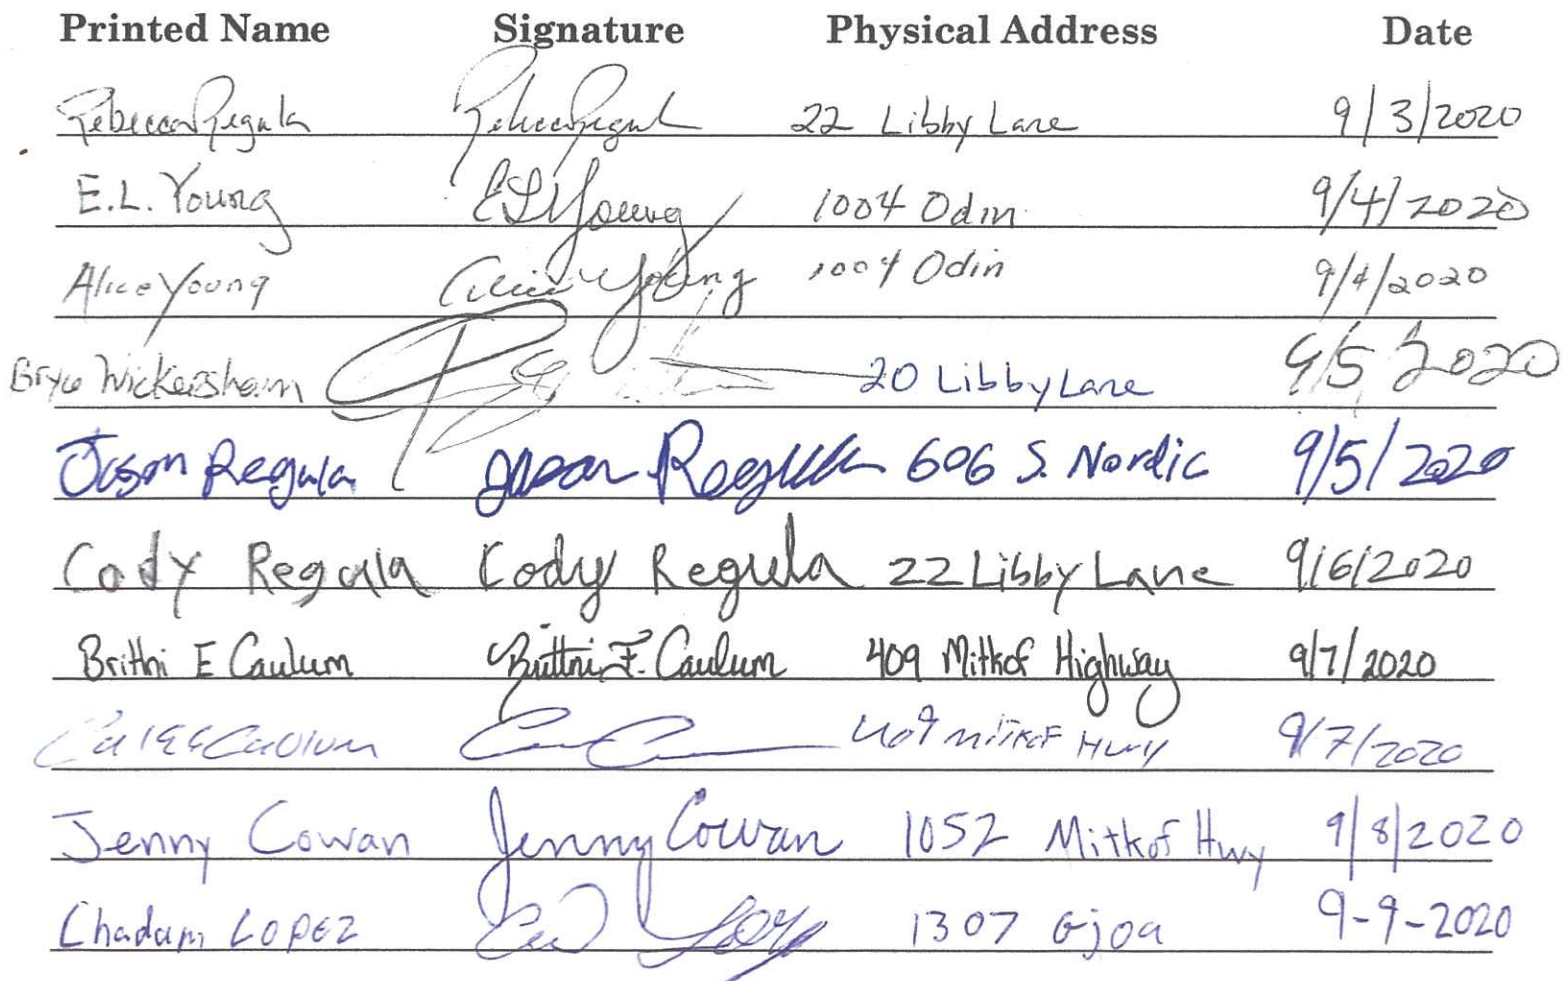 Printed Name Signature Physical Address Date
Rebecca Regula Rebecca Regula 22 Libby Lane 9/3/2020
E.L. Young EL Young 1004 Odin 9/4/2020
Alice Young Alice Young 1004 Odin 9/4/2020
Bryce Wickersham 20 Libby Lane 9/5/2020
Jason Regula Jason Regula 606 S. Nordic 9/5/2020
Cody Regula Cody Regula 22 Libby Lane 9/6/2020
Brittni E Caulum Brittni E. Caulum 409 Mitkof Highway 9/7/2020
Caulum 409 Mitkof Hwy 9/7/2020
Jenny Cowan Jenny Cowan 1052 Mitkof Hwy 9/8/2020
Chadam LOPEZ 1307 Gjoa 9-9-2020